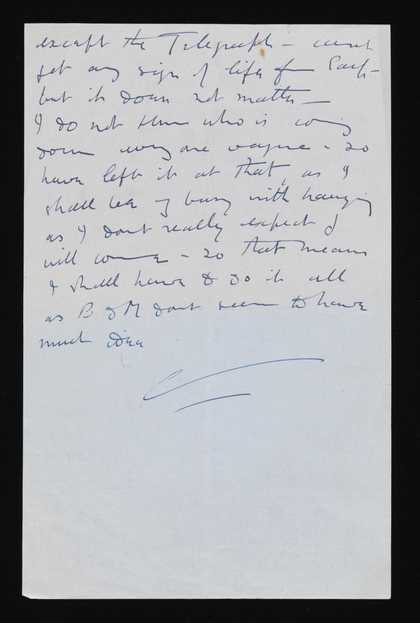 except the Telegraph – cant
get any sign of life from
but it does not matter –
I do not know who is coming
down every one vague – so
have left it at that, as I
shall be busy with hanging
as I dont really expect J
will come – so that means
I shall have to do it all
as B & M dont seem to have
much idea